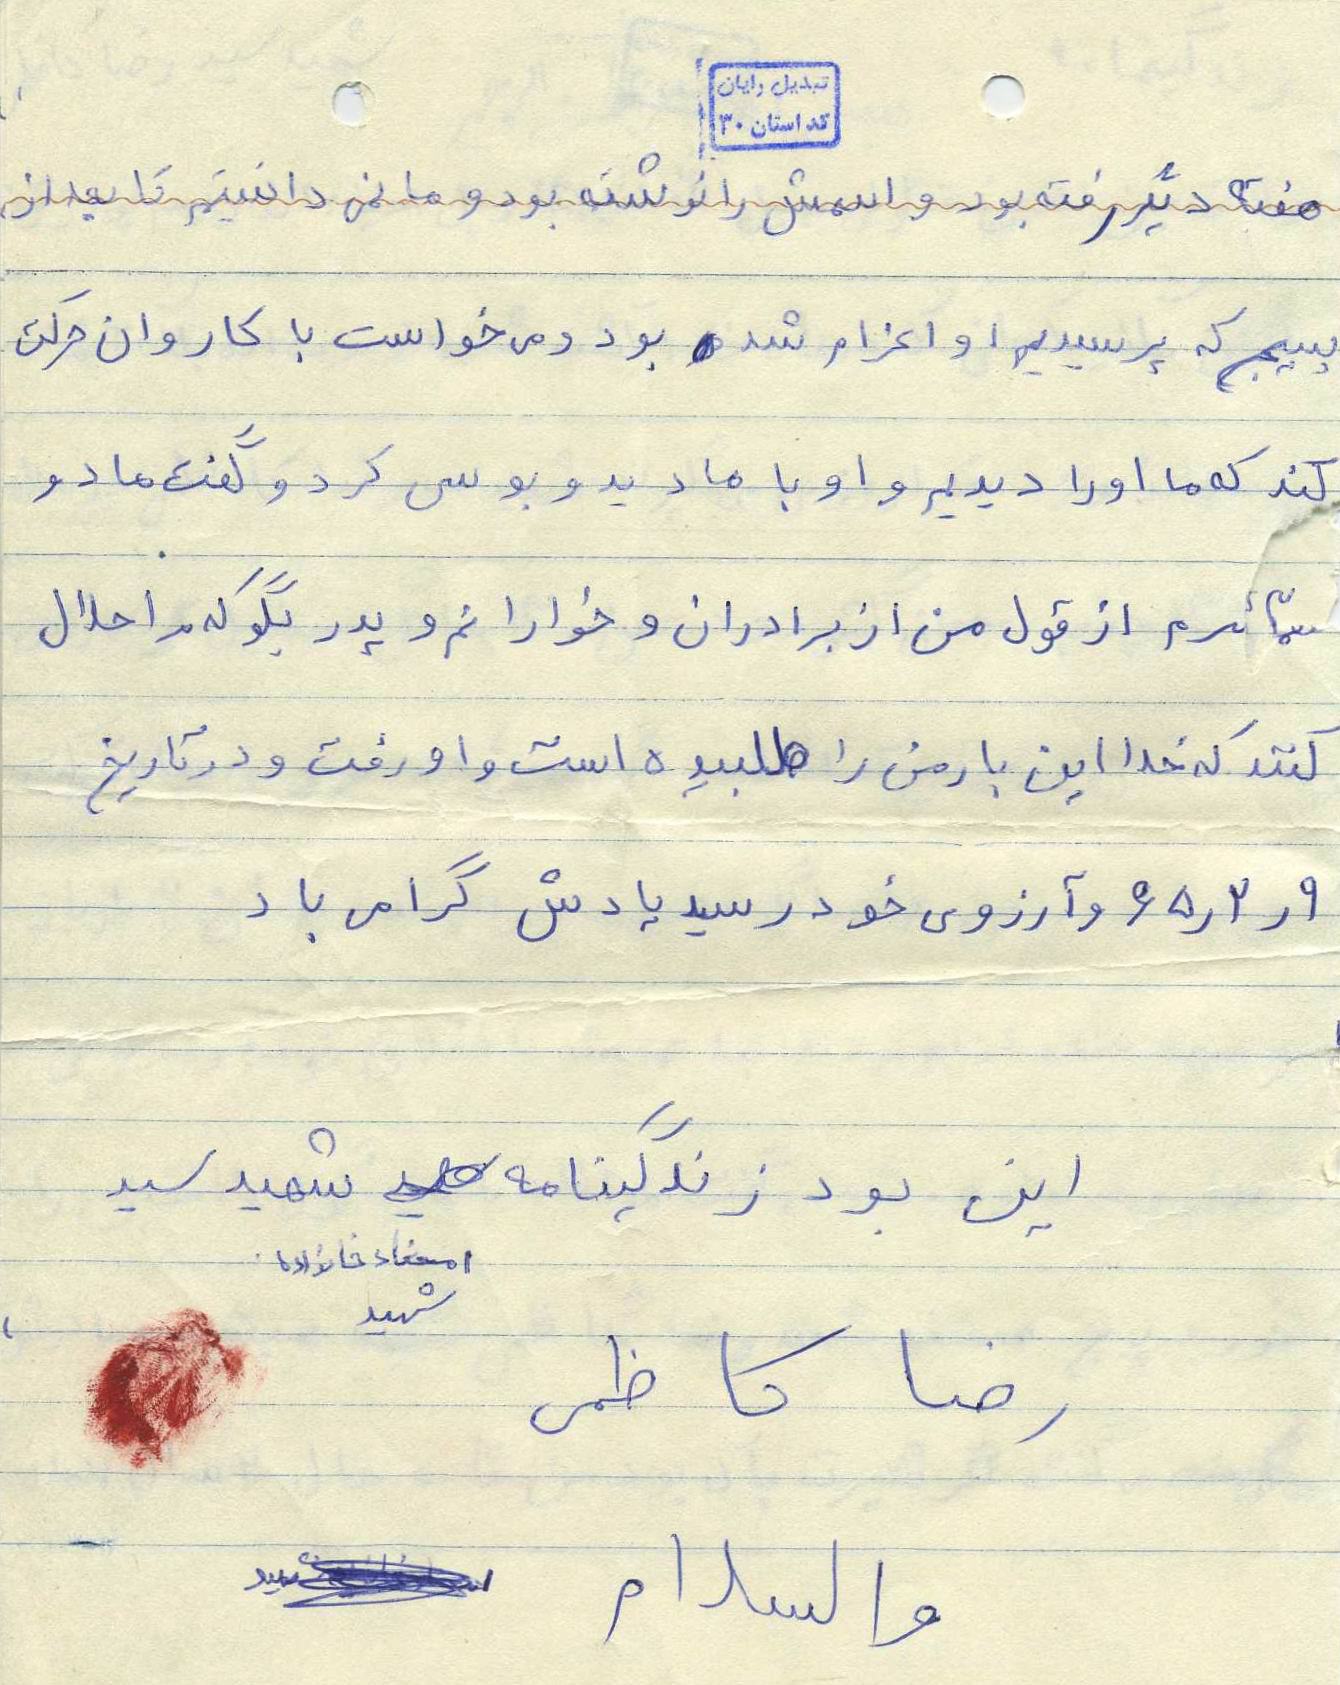 تبدیل رایان
کد استان ۳۰
هفته دیگر رفته بود و اسمش را نوشته بود و ما نمی دانستیم تا بعد از
بسیج که پرسیدیم او اعزام شده بود و می خواست با کاروان حرکت
کند که ما او را دیدیم و او با ما دید و بوسی کرد و گفت مادو
از قول من از برادران و خوارانم و پدر بگو که مرا حلال
کنند که خدا این بار من را طلبیده است و او رفت و در تاریخ
۹ر۲ر۶۵ و آرزوی خود رسید یادش گرامی باد
این بود زندگینامه شهید سید
امضاء خانواده
شهید
رضا کاظمی
والسلام